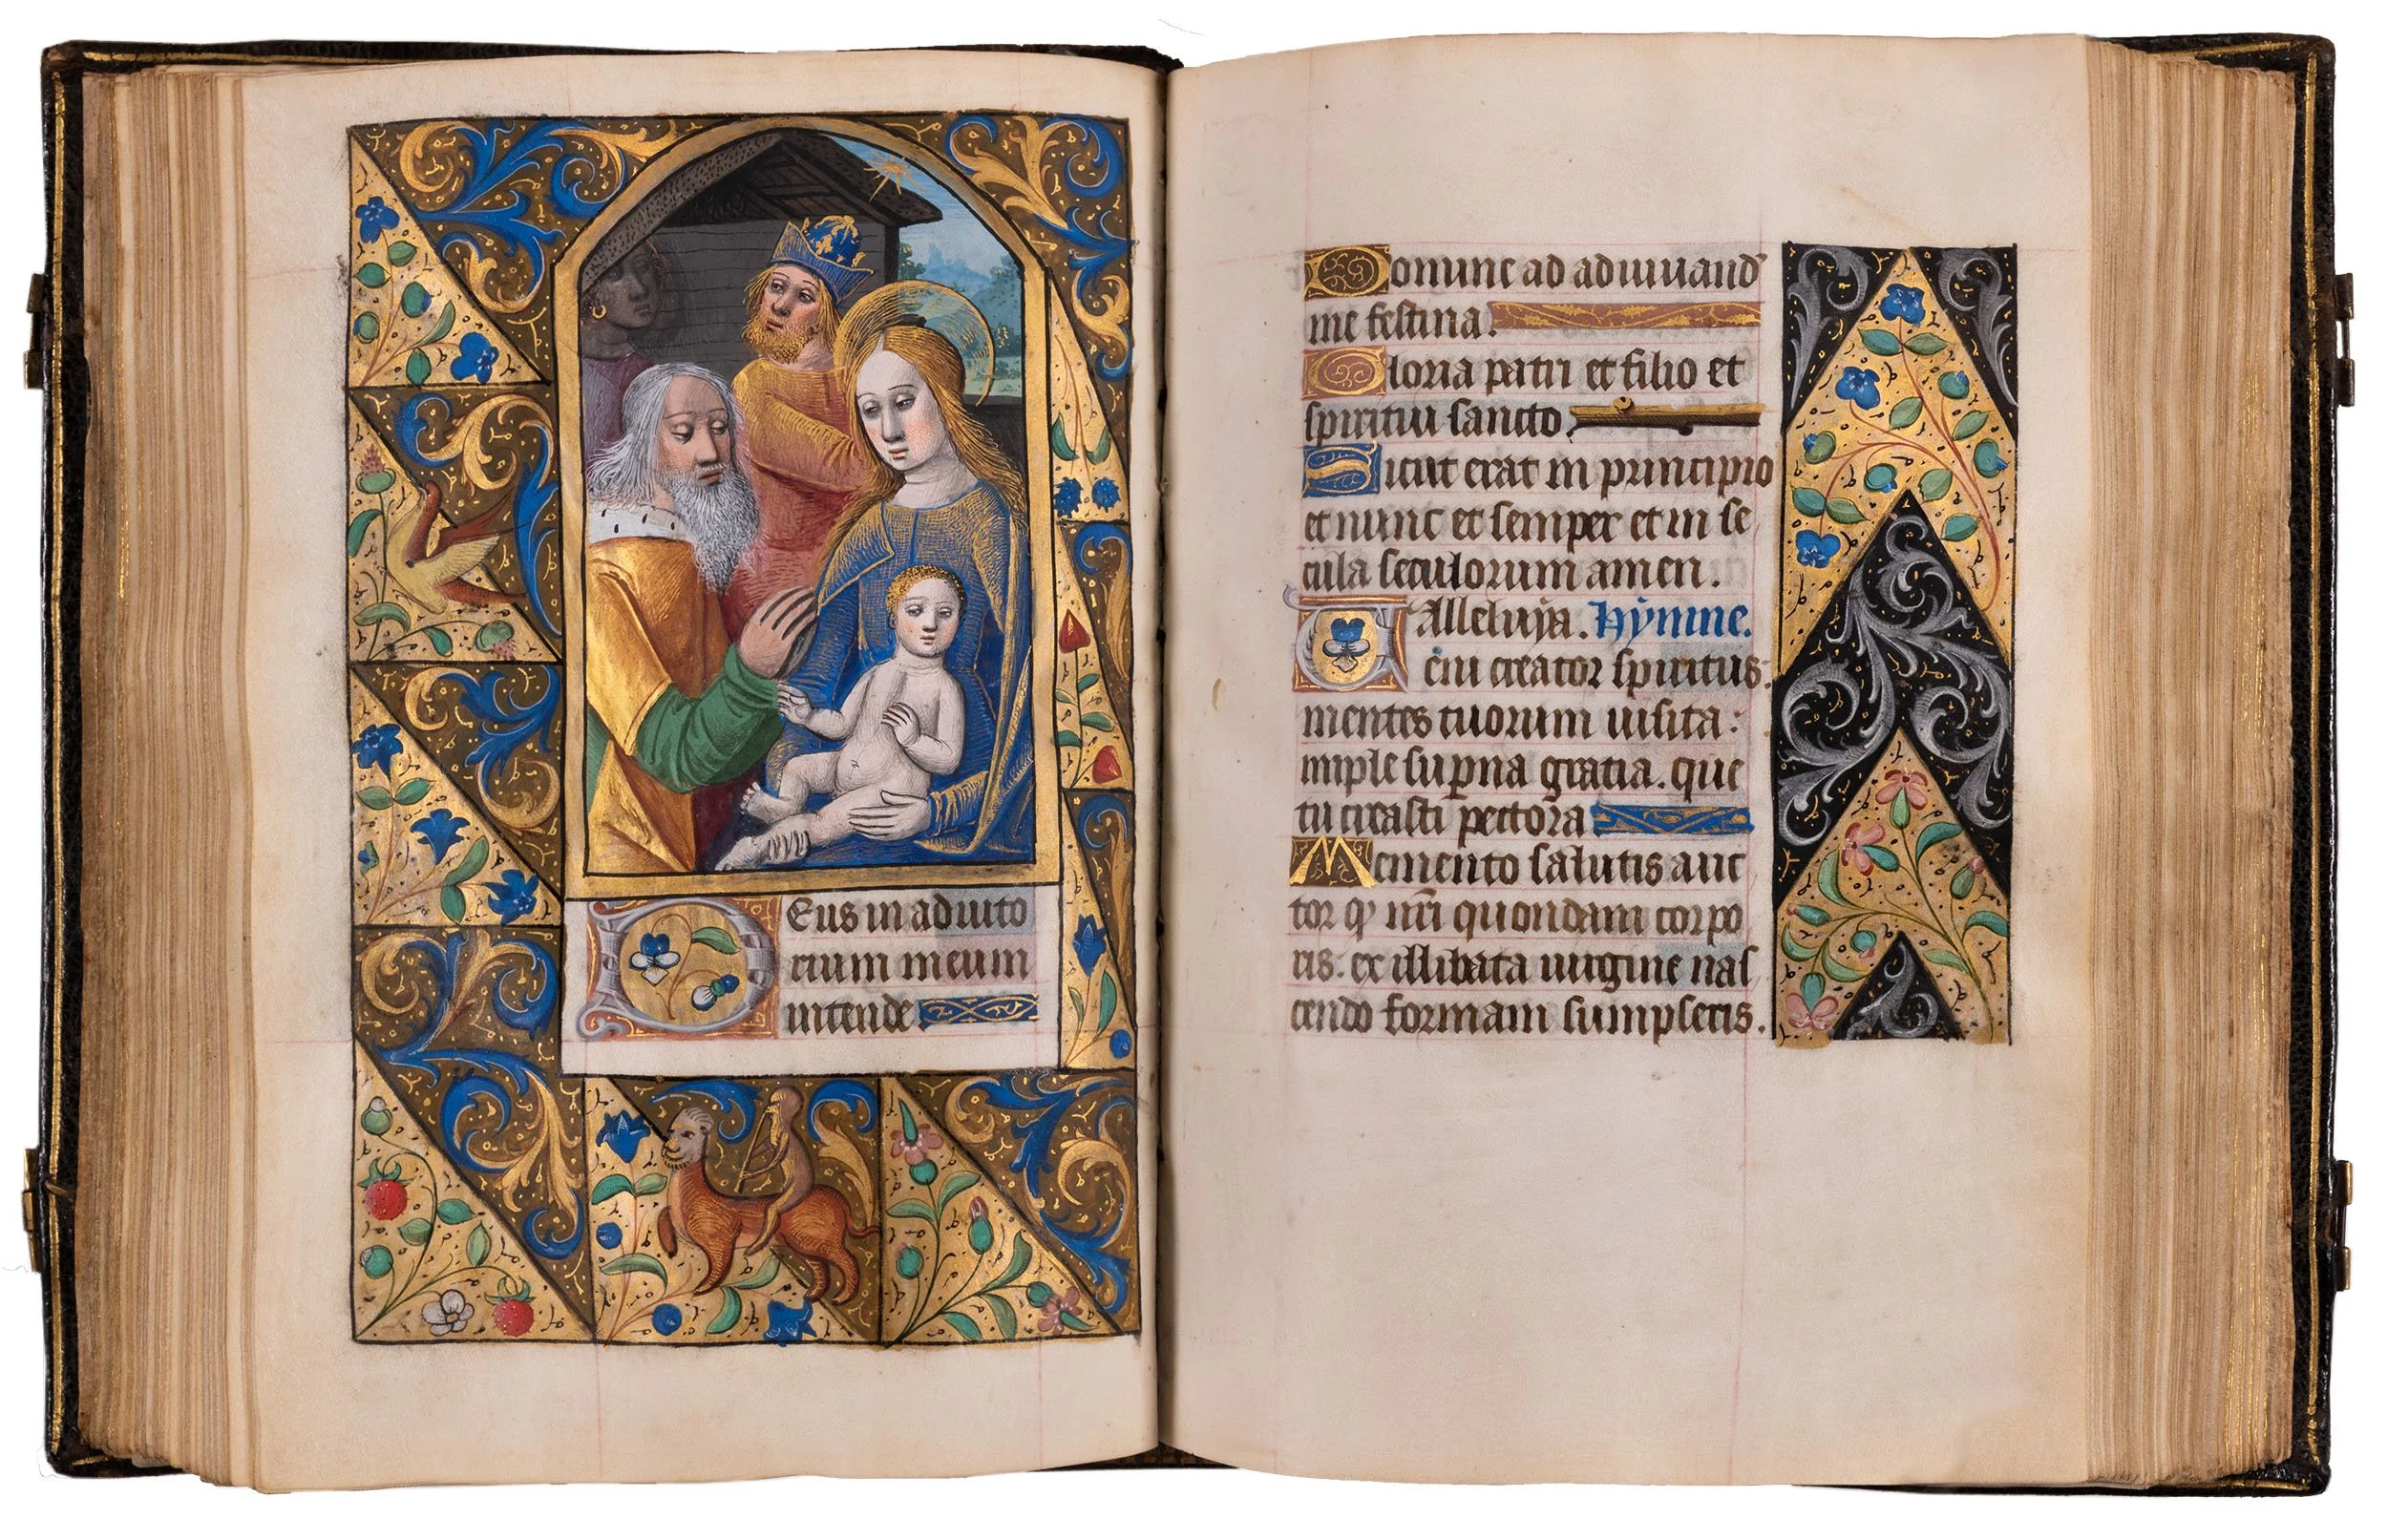 Deus in adiuto
rium meum
intende.
Domine ad adiuuand'
me festina.
Gloria patri et filio et
spiritui sancto.
Sicut erat in principio
et nunc et semper et in se
cula seculorum amen.
Alleluya. Hymne.
Veni creator spiritus:
mentes tuorum uisita:
imple suꝑna gratia. que
tu creasti pectora
Memento salutis auc
tor ꝙ nr̄i quondam corpo
ris. ex illibata uirgine nas
cendo formam sumpseris.